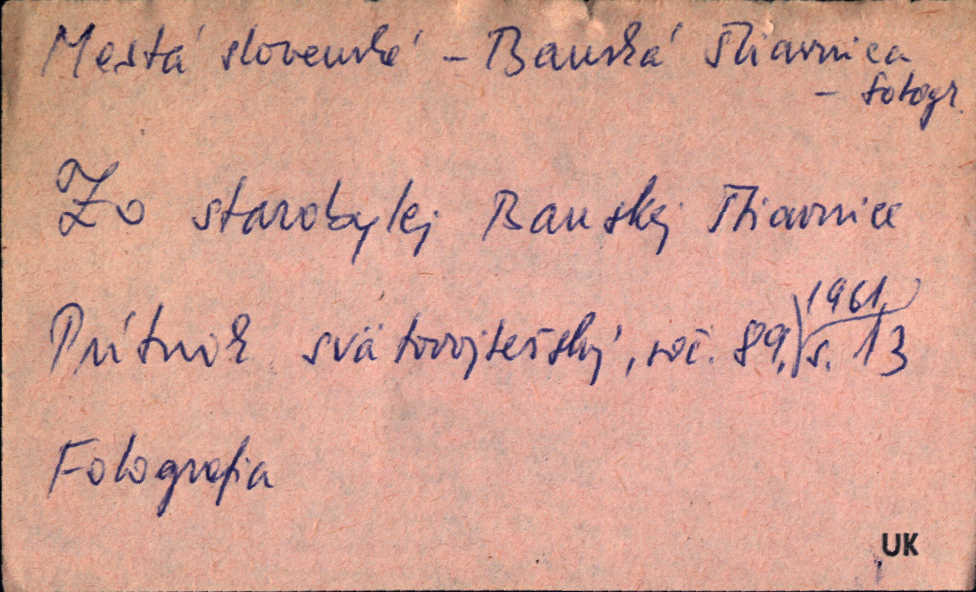 Mestá slovenské - Banská Štiavnica
- fotogr.
Zo starobylej Banskej Štiavnice
Pútnik svätovojtešský, roč. 89, 1961, s. 13
Fotografia
UK